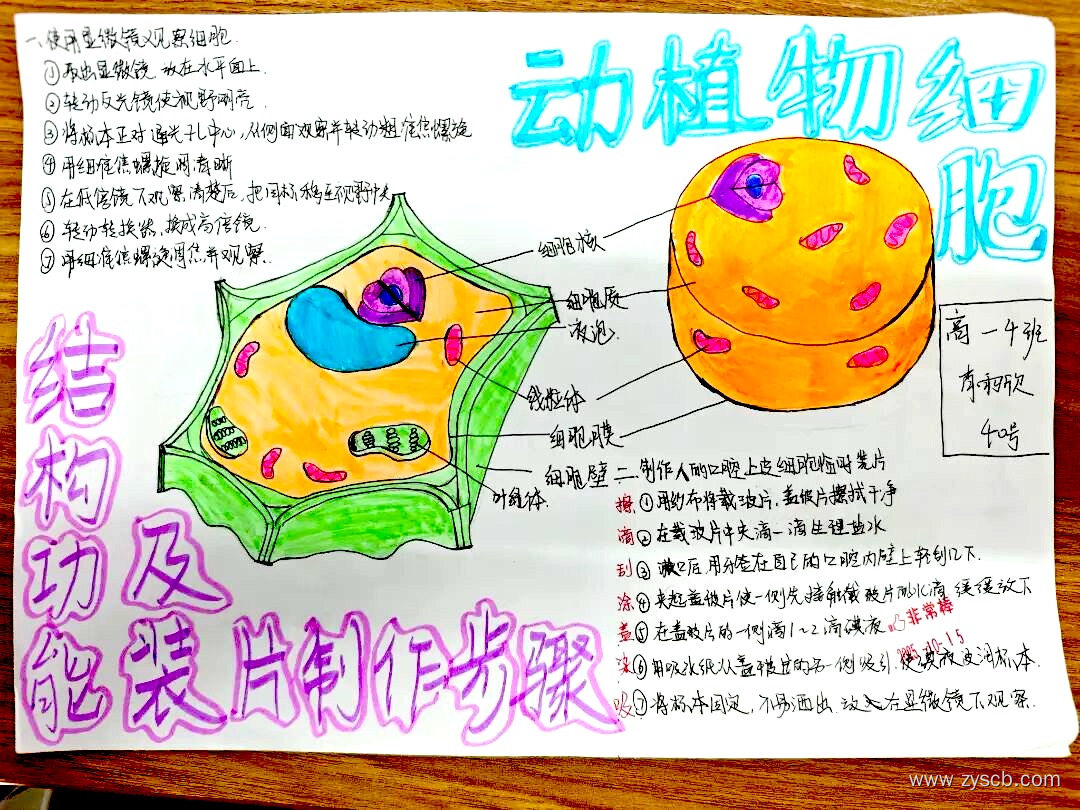 一、使用显微镜观察细胞.
①取出显微镜 放在水平面上.
②转动反光镜使视野明亮.
③将标本正对通光孔中心,从侧面观察并转动粗准焦螺旋
④用细准焦螺旋调清晰
⑤在低倍镜下观察清楚后,把目标移至视野中央
⑥转动转换器,换成高倍镜.
⑦用细准焦螺旋调焦并观察.
动植物细
胞
细胞核
细胞质
液泡.
线粒体
细胞膜
细胞壁
叶绿体.
高一4班
40号
结
构
功及
能装片制作步骤
二、制作人的口腔上皮细胞临时装片
擦①用纱布将载玻片,盖玻片擦拭干净
滴②在载玻片中央滴一滴生理盐水
刮③漱口后用牙签在自己的口腔内壁上轻刮几下.
涂④夹起盖玻片使一侧先接触载玻片的水滴 缓缓放下
盖⑤在盖玻片的一侧滴1~2滴碘液
非常棒
染⑥用吸水纸从盖玻片的另一侧吸引,使碘液浸润标本.
吸⑦将标本固定,不易洒出.放入在显微镜下观察.
www.zyscb.com